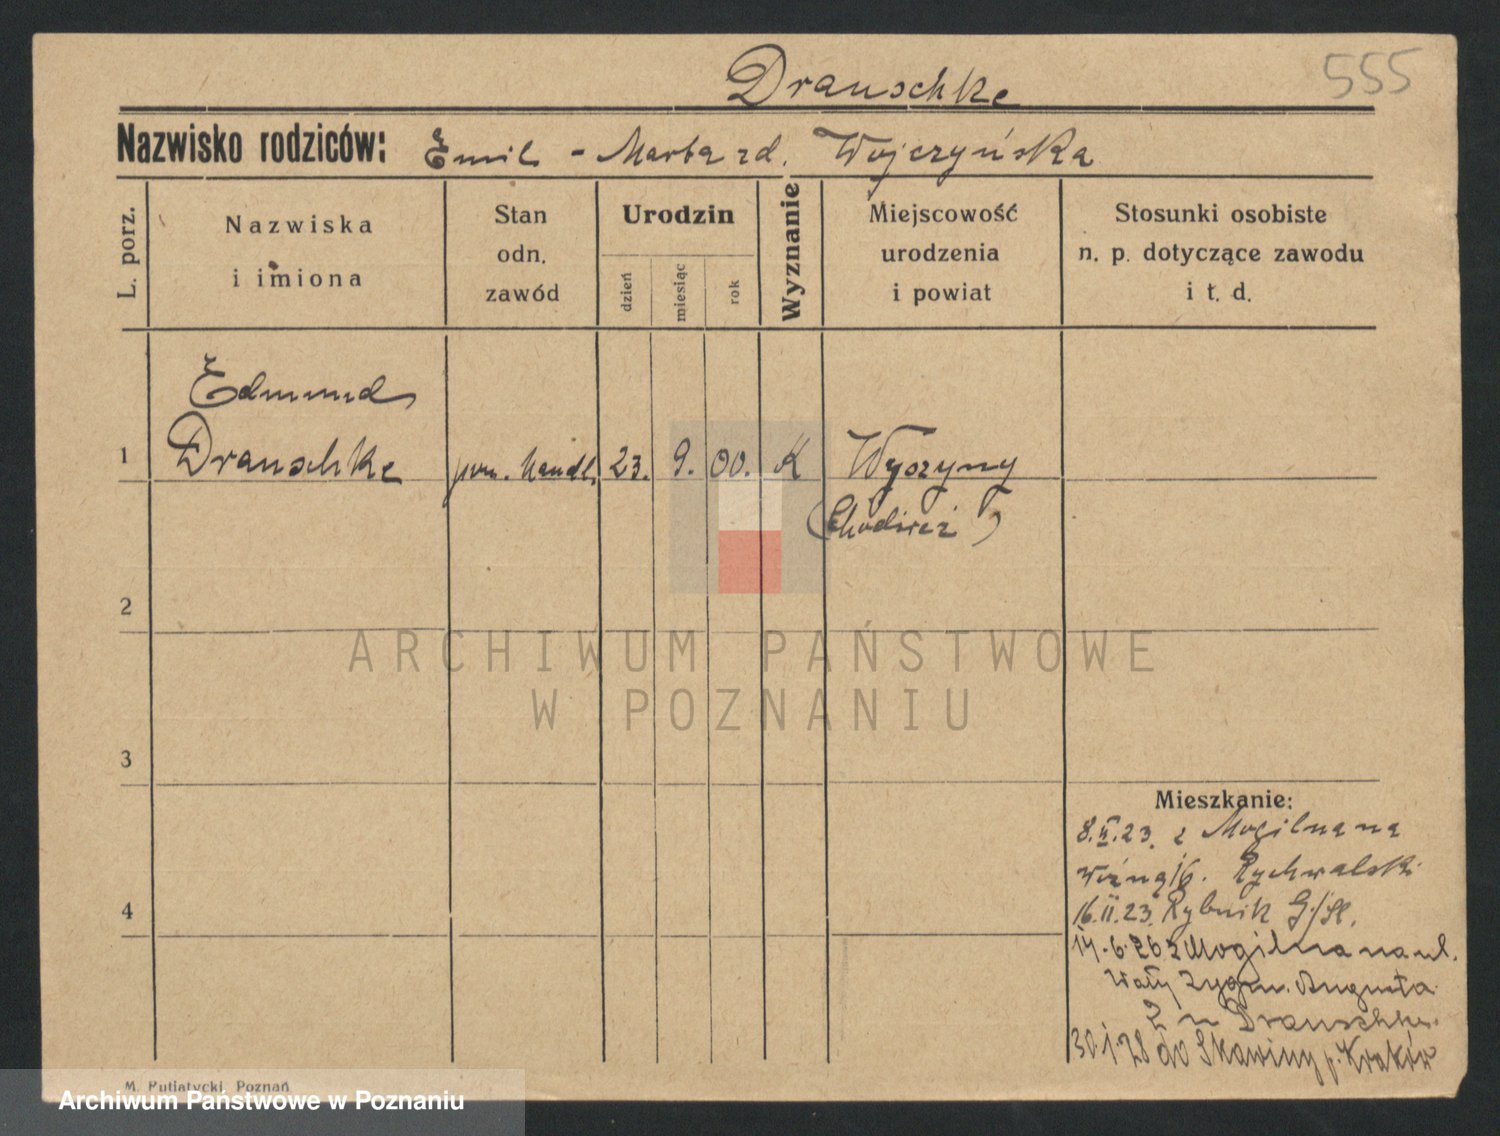 Drauschke
555
Nazwisko rodziców: Emil - Marta zd. Wojczyńska
L. porz.
Nazwiska
i imiona
Stan
odn.
zawód
Urodzin
dzień
miesiąc
rok
Wyznanie
Miejscowość
urodzenia
i powiat
Stosunki osobiste
n. p. dotyczące zawodu
i t. d.
Edmund
1 Drauschke pom. handl. 23. 9. 00. K Wyszyny
(Chodzież)
2
ARCHIWUM PAŃSTWOWE
W POZNANIU
3
Mieszkanie:
8.II.23. z Mogilna na
Woźną 16. Rychwalski
4
16.II.23. Rybnik G/Śl.
14.6.26 z Mogilna na ul.
Wały Zygm. Augusta
2 u Drauschke.
30.1.28 do Skawiny p. Kraków
M. Putiatycki, Poznań
Archiwum Państwowe w Poznaniu